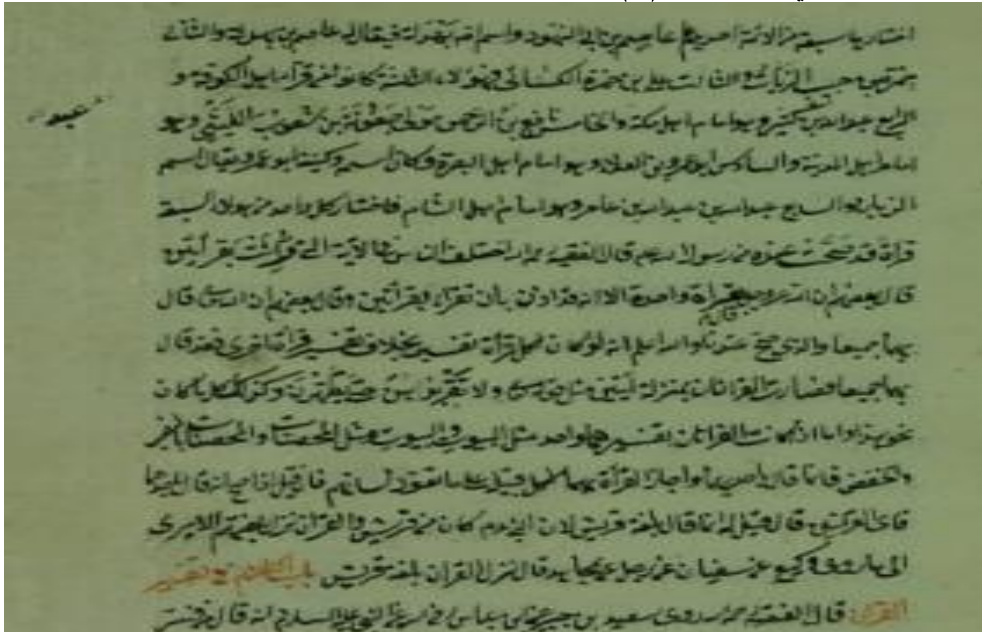 اختاريا سبعة من الائمة احديهم عاصم بن ابى النجود واسم امه بهدلة فيقال له عاصم بن بهدلة والثانى
حمزة بن حبيب الزيات والثالث على بن حمزة الكسائى فهؤلاء الثلثة كانوا من قراء اهل الكوفة و
الرابع عبد الله بن كثير وهو امام اهل مكة والخامس نافع بن عبد الرحمن مولى جعونة بن شعوب الليثى وهو
امام اهل المدينة والسادس ابو عمرو بن العلاء وهو امام اهل البصرة وكان اسمه وكنيته ابو عمرو ويقال اسمه
الزبان والسابع عبد الله بن عامر وهو امام اهل الشام فاختار كل واحد من هؤلاء السبعة
قراة قد صحت عنده من رسول الله قال الفقيه رحمه الله اختلف الناس فى الاية التى قرئت بقرأتين
قال بعضهم ان الله بقراة واحدة الا انه قد اذن بان تقراء بقرأتين وقال بعضهم ان الله قال
بهما جميعا والذى صح عندنا والله اعلم انه لو كان لكل قرأة تفسير بخلاف تفسير قرأة اخرى فقد قال
بهما جميعا فصارت القرأتان بمنزلة ايتين مثل قوله ولا تقربوهن حتى يطهرن وكذلك كل ما كان
نحو هذا واما اذا كانت القرأتان تفسيرهما واحد مثل البيوت والبيوت ومثل المحصنات والمحصنات بالنصب
والخفض فانما قال باحديهما واجاز القرأة بهما لكل قبيلة على ما تعود لسانهم فان قيل اذا صح انه قال باحديهما
فاى القرأتين قال قيل له انما قال بلغة قريش لان النبى كان من قريش والقران نزل بلغتهم الا يرى
الى ما روى وكيع عن سفيان عن رجل عن مجاهد قال نزل القران بلغة قريش باب الكلام فى تفسير
القران قال الفقيه رحمه الله روى سعيد بن جبير عن ابن عباس عن النبى عليه السلام انه قال من فسر